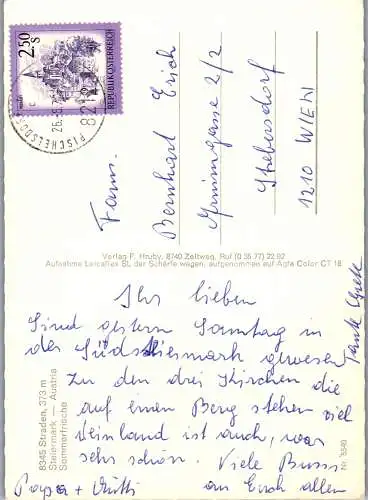 2.50 S
REPUBLIK ÖSTERREICH
8212 PISCHELSDORF
Fam.
Bernhart Erich
2/2
Stebersdorf
1210 WIEN
Verlag F. Hruby, 8740 Zeltweg, Ruf (0 35 77) 22 82
Aufnahme Leicaflex SL der Schärfe wegen, aufgenommen auf Agfa Color CT 18
8345 Straden, 373 m
Steiermark — Austria
Sommerfrische
Nr. 8340
Ihr lieben
Sind gestern Sonntag in
der Südsteiermark gewesen
Zu den drei Kirchen die
auf einen Berg stehen viel
Weinland ist auch, war
sehr schön. Viele Bussi
Papa + Mutti an Euch allen
Tante